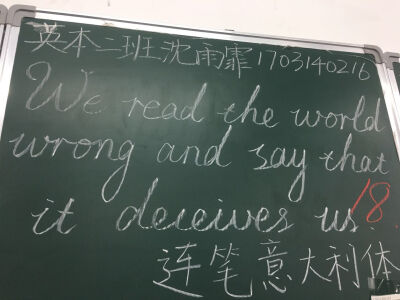 英本二班沈雨霏1703140216
We read the world
wrong and say that
it deceives us.
18
连笔意大利体